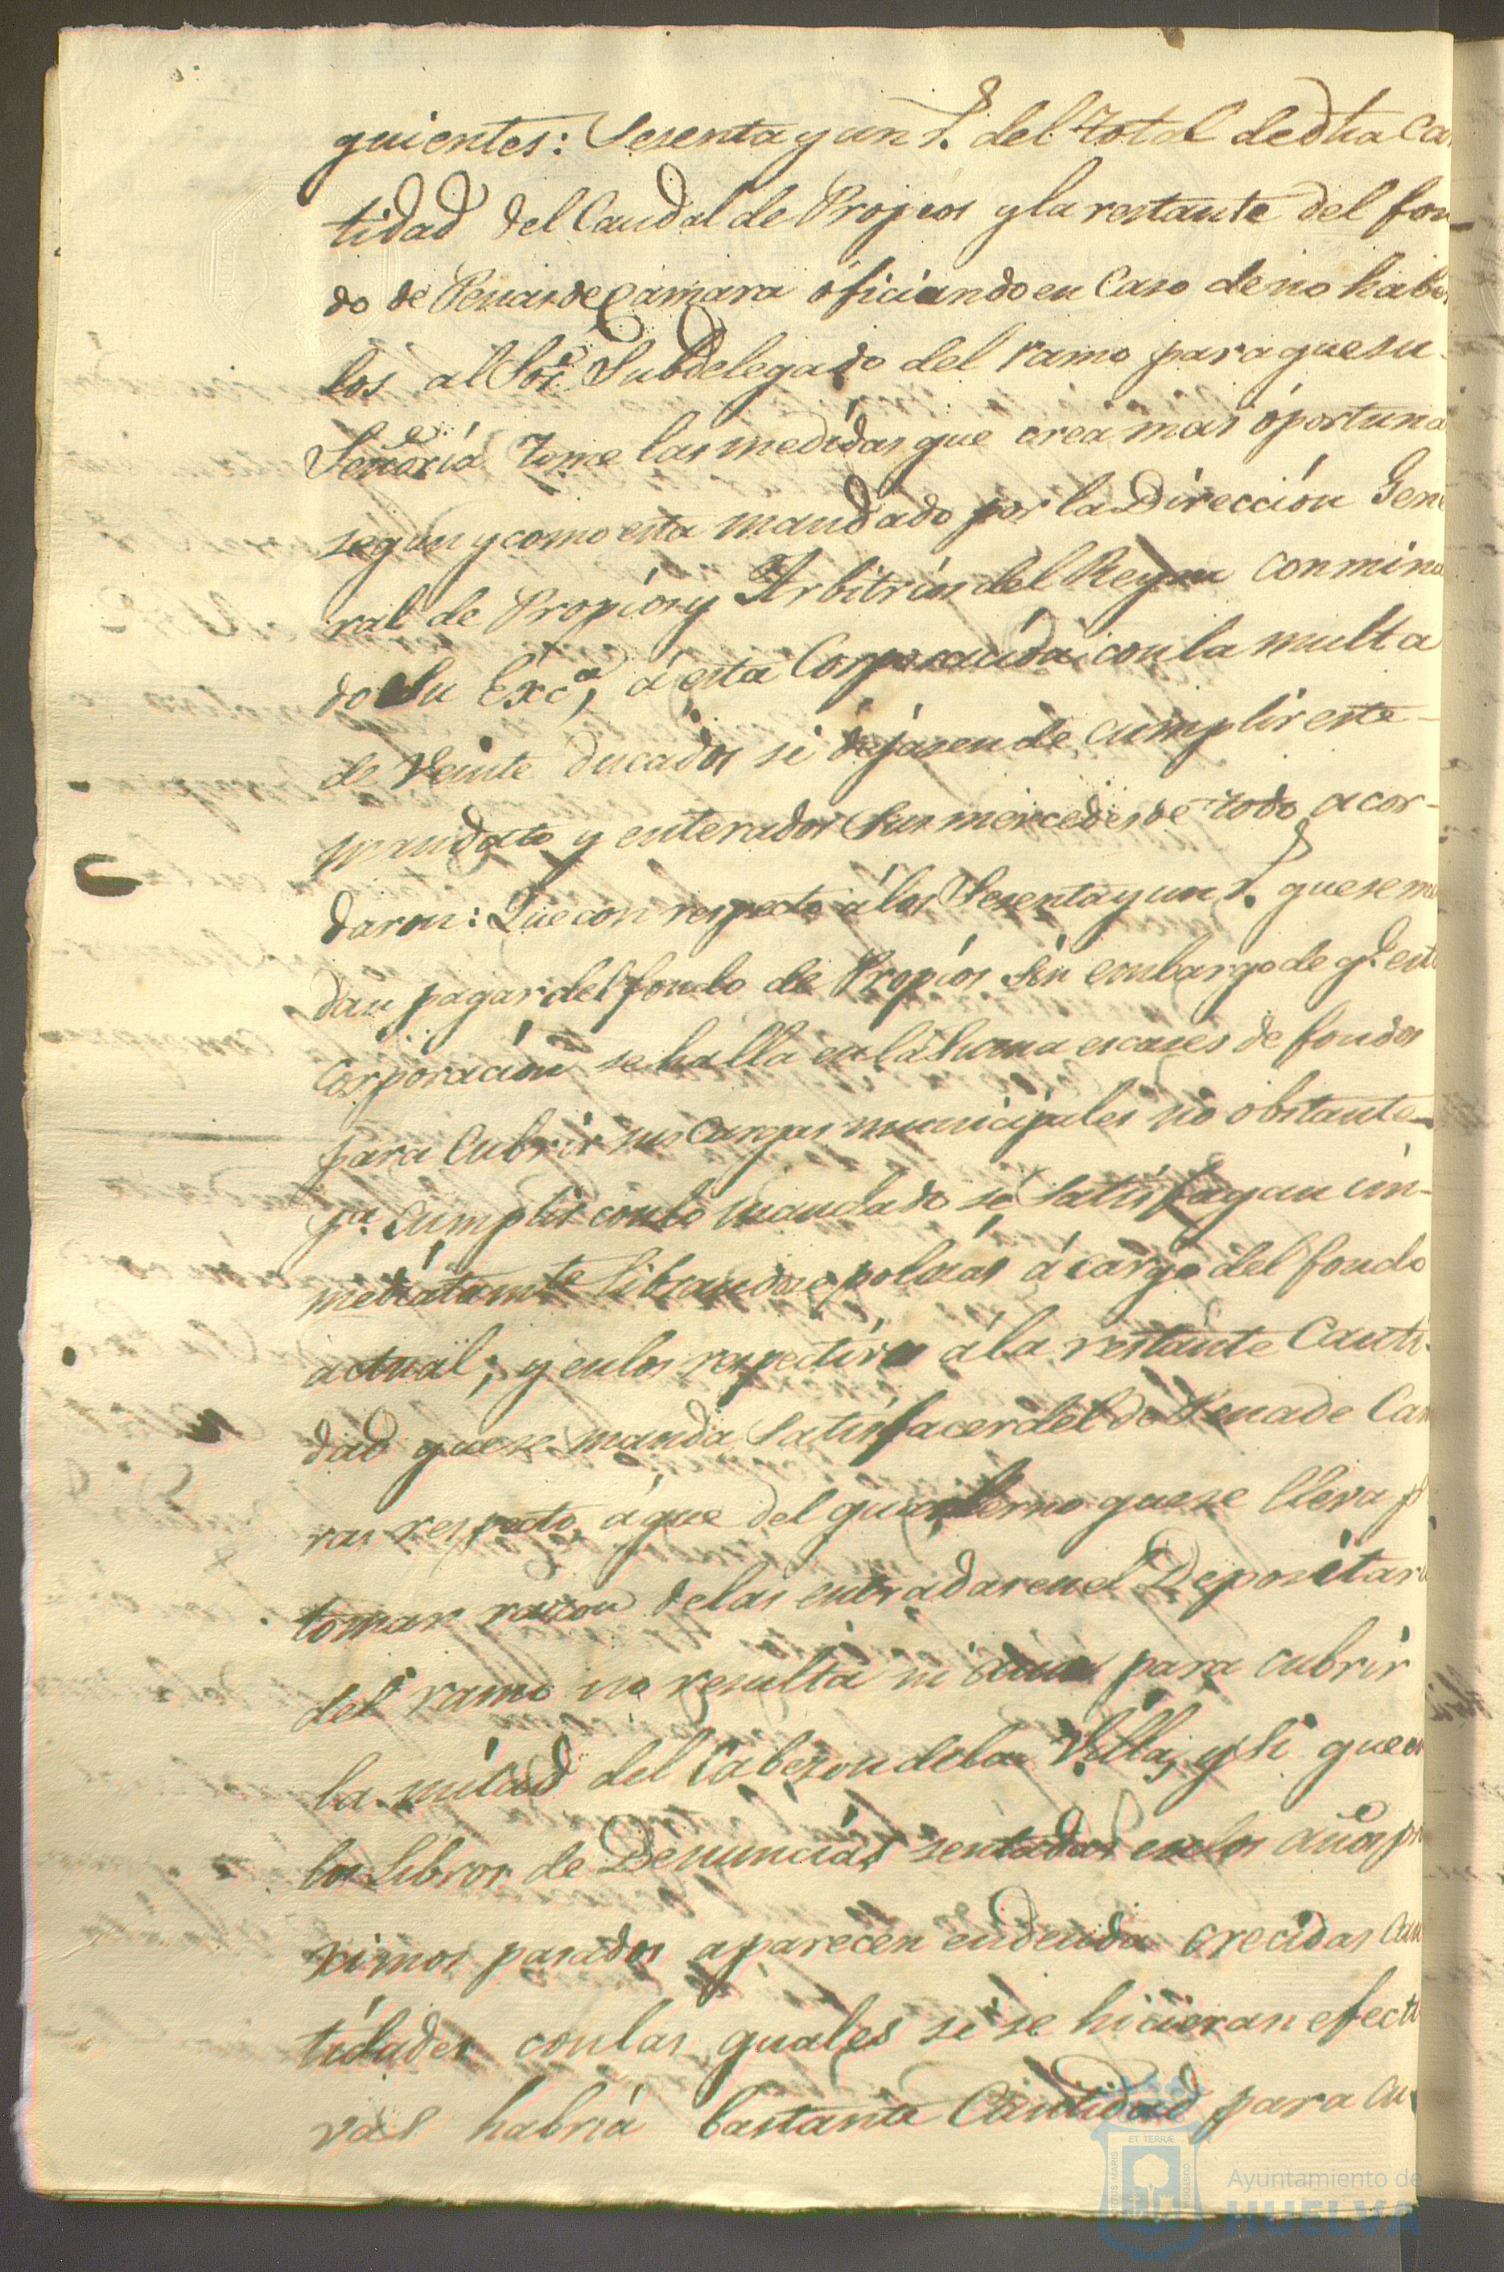 guientes: Sesenta y un r.s del total de dha Can
tidad del Caudal de Propios y la restante del fon
do de Penas de Camara oficiando en Caso de no haber
los al Sor. Subdelegado del ramo para que su
Señoría tome las medidas que crea mas oportuna
segun y como esta mandado por la Dirección Gene
ral de Propios y Arbitrios del Reyno conminan
do Su Exca, á esta Corporación con la multa
de Veinte ducados si dejasen de cumplir este
mandato y enterados Sus mercedes de todo acor-
daron: Que con respecto á los Sesenta y un r.s que se man
dan pagar del fondo de Propios Sin embargo de q.e esta
Corporacion se halla en la Suma escases de fondos
para Cubrir sus Cargas municipales no obstante
pa. Cumplir con lo mandado se Satisfagan in-
mediatamte librandose polizas á cargo del fondo
actual; y en los respectivo á la restante Canti-
dad que se manda Satisfacer del de Pena de Cama
ras respecto, á que del quaderno que se lleva pa
tomar razon de las entradas en el Depositario
del ramo no resulta ni aun para cubrir
la mitad del Cabezon de la Villa, y si que en
los Libros de Denuncias sentadas en los años pro
ximos pasados aparecen en deuda crecidas Can
tidades con las quales si se hicieran efecti
vas habria bastante Cantidad para Cu
ET TERRÆ
Ayuntamiento de
HUELVA